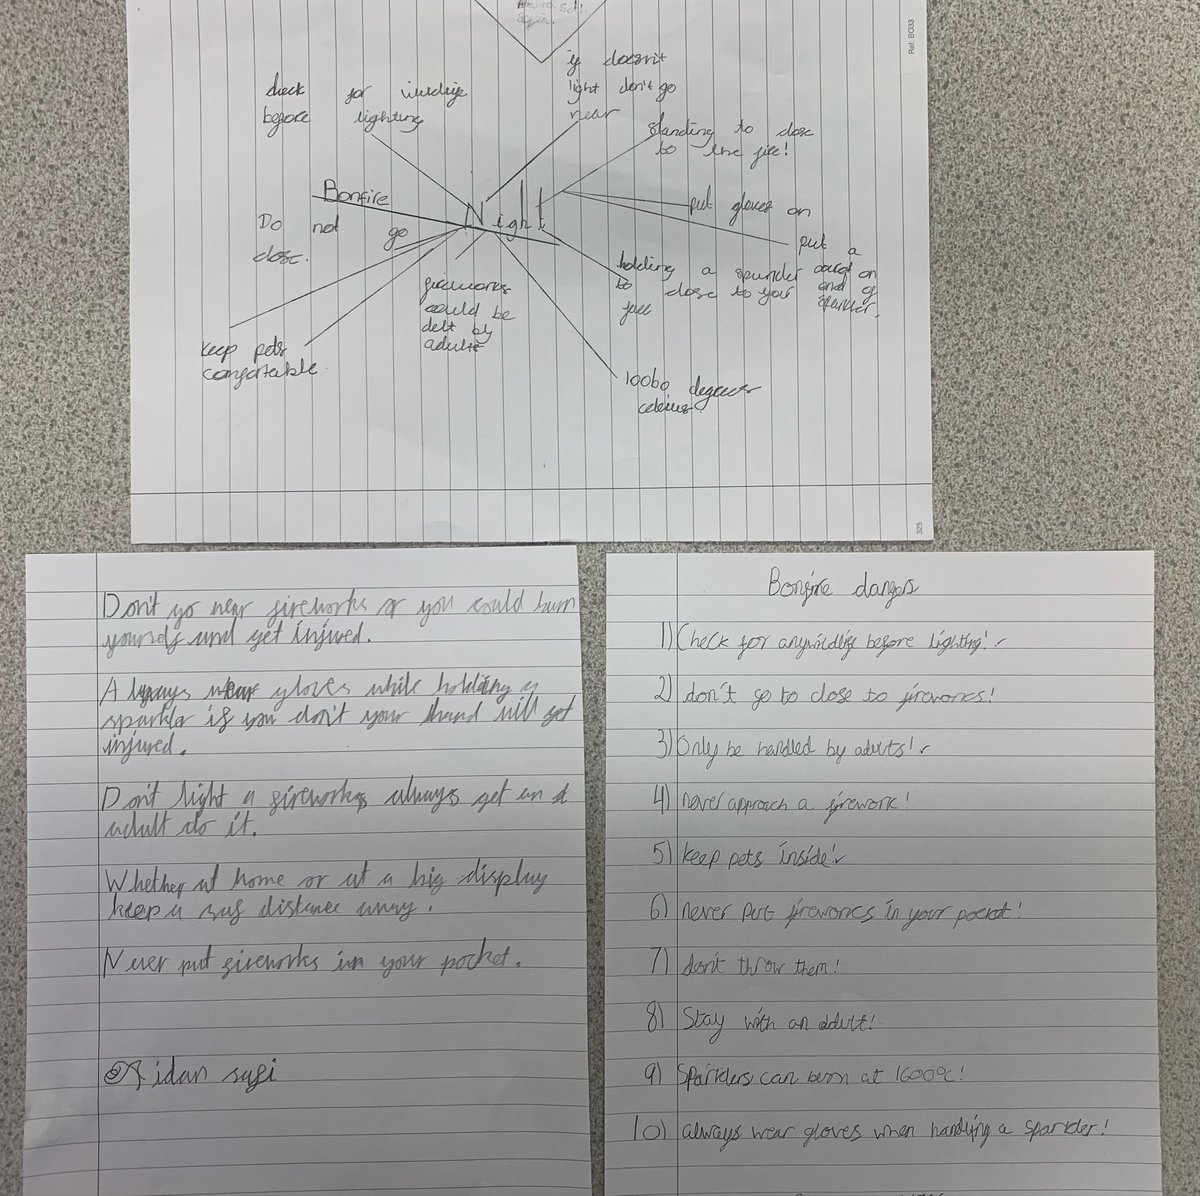 Ref: BO33
if doesn't
light don't go
near
check for wildlife
before lighting
standing to close
to the fire!
Bonfire Night
put gloves on
Do not go
close.
put a
card on
end of
sparkler.
holding a sparkler
to close to your
face
fireworks
could be
delt by
adults
keep pets
comfortable
1000 degrees
celcius
325
Don't go near fireworks or you could burn
yourself and get injured.
Always wear gloves while holding a
sparkler if you don't your hand will get
injured.
Don't light a fireworks always get an
adult do it.
Whether at home or at a big display
keep a saf distance away.
Never put fireworks in your pocket.
Aidan sagi
Bonfire dangers
1) Check for any wildlife before lighting!
2) don't go to close to fireworks!
3) Only be handled by adults!
4) never approach a firework!
5) keep pets inside!
6) never put fireworks in your pocket!
7) don't throw them!
8) Stay with an adult!
9) Sparklers can burn at 1600°c!
10) always wear gloves when handling a sparkler!